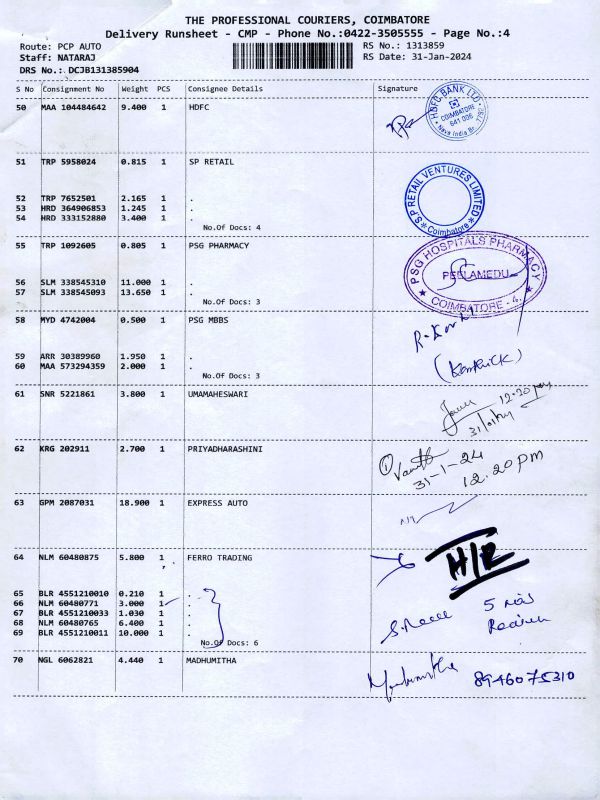 THE PROFESSIONAL COURIERS, COIMBATORE
Delivery Runsheet - CMP - Phone No.:0422-3505555 - Page No.:4
Route: PCP AUTO RS No.: 1313859
Staff: NATARAJ RS Date: 31-Jan-2024
DRS No.: DCJB131385904
S No Consignment No Weight PCS Consignee Details Signature
50 MAA 104484642 9.400 1 HDFC
HDFC BANK LTD. COIMBATORE 641 006
51 TRP 5958024 0.815 1 SP RETAIL
S.P RETAIL VENTURES LIMITED ★ Coimbatore ★
52 TRP 7652501 2.165 1 .
53 HRD 364906853 1.245 1 .
54 HRD 333152880 3.400 1 .
No.Of Docs: 4
55 TRP 1092605 0.805 1 PSG PHARMACY
PSG HOSPITALS PHARMACY PEELAMEDU ★ COIMBATORE - 4. ★
56 SLM 338545310 11.000 1 .
57 SLM 338545093 13.650 1 .
No.Of Docs: 3
58 MYD 4742004 0.500 1 PSG MBBS
59 ARR 30389960 1.950 1 .
60 MAA 573294359 2.000 1 .
No.Of Docs: 3
61 SNR 5221861 3.800 1 UMAMAHESWARI
12.20 pm
31/01/24
62 KRG 202911 2.700 1 PRIYADHARASHINI
31-1-24
12.20 PM
63 GPM 2087031 18.900 1 EXPRESS AUTO
64 NLM 60480875 5.800 1 FERRO TRADING
H/R
65 BLR 4551210010 0.210 1 .
66 NLM 60480771 3.000 1 .
67 BLR 4551210033 1.030 1 .
68 NLM 60480765 6.400 1 .
69 BLR 4551210011 10.000 1 .
No.Of Docs: 6
70 NGL 6062821 4.440 1 MADHUMITHA
Madhumitha 8946075310